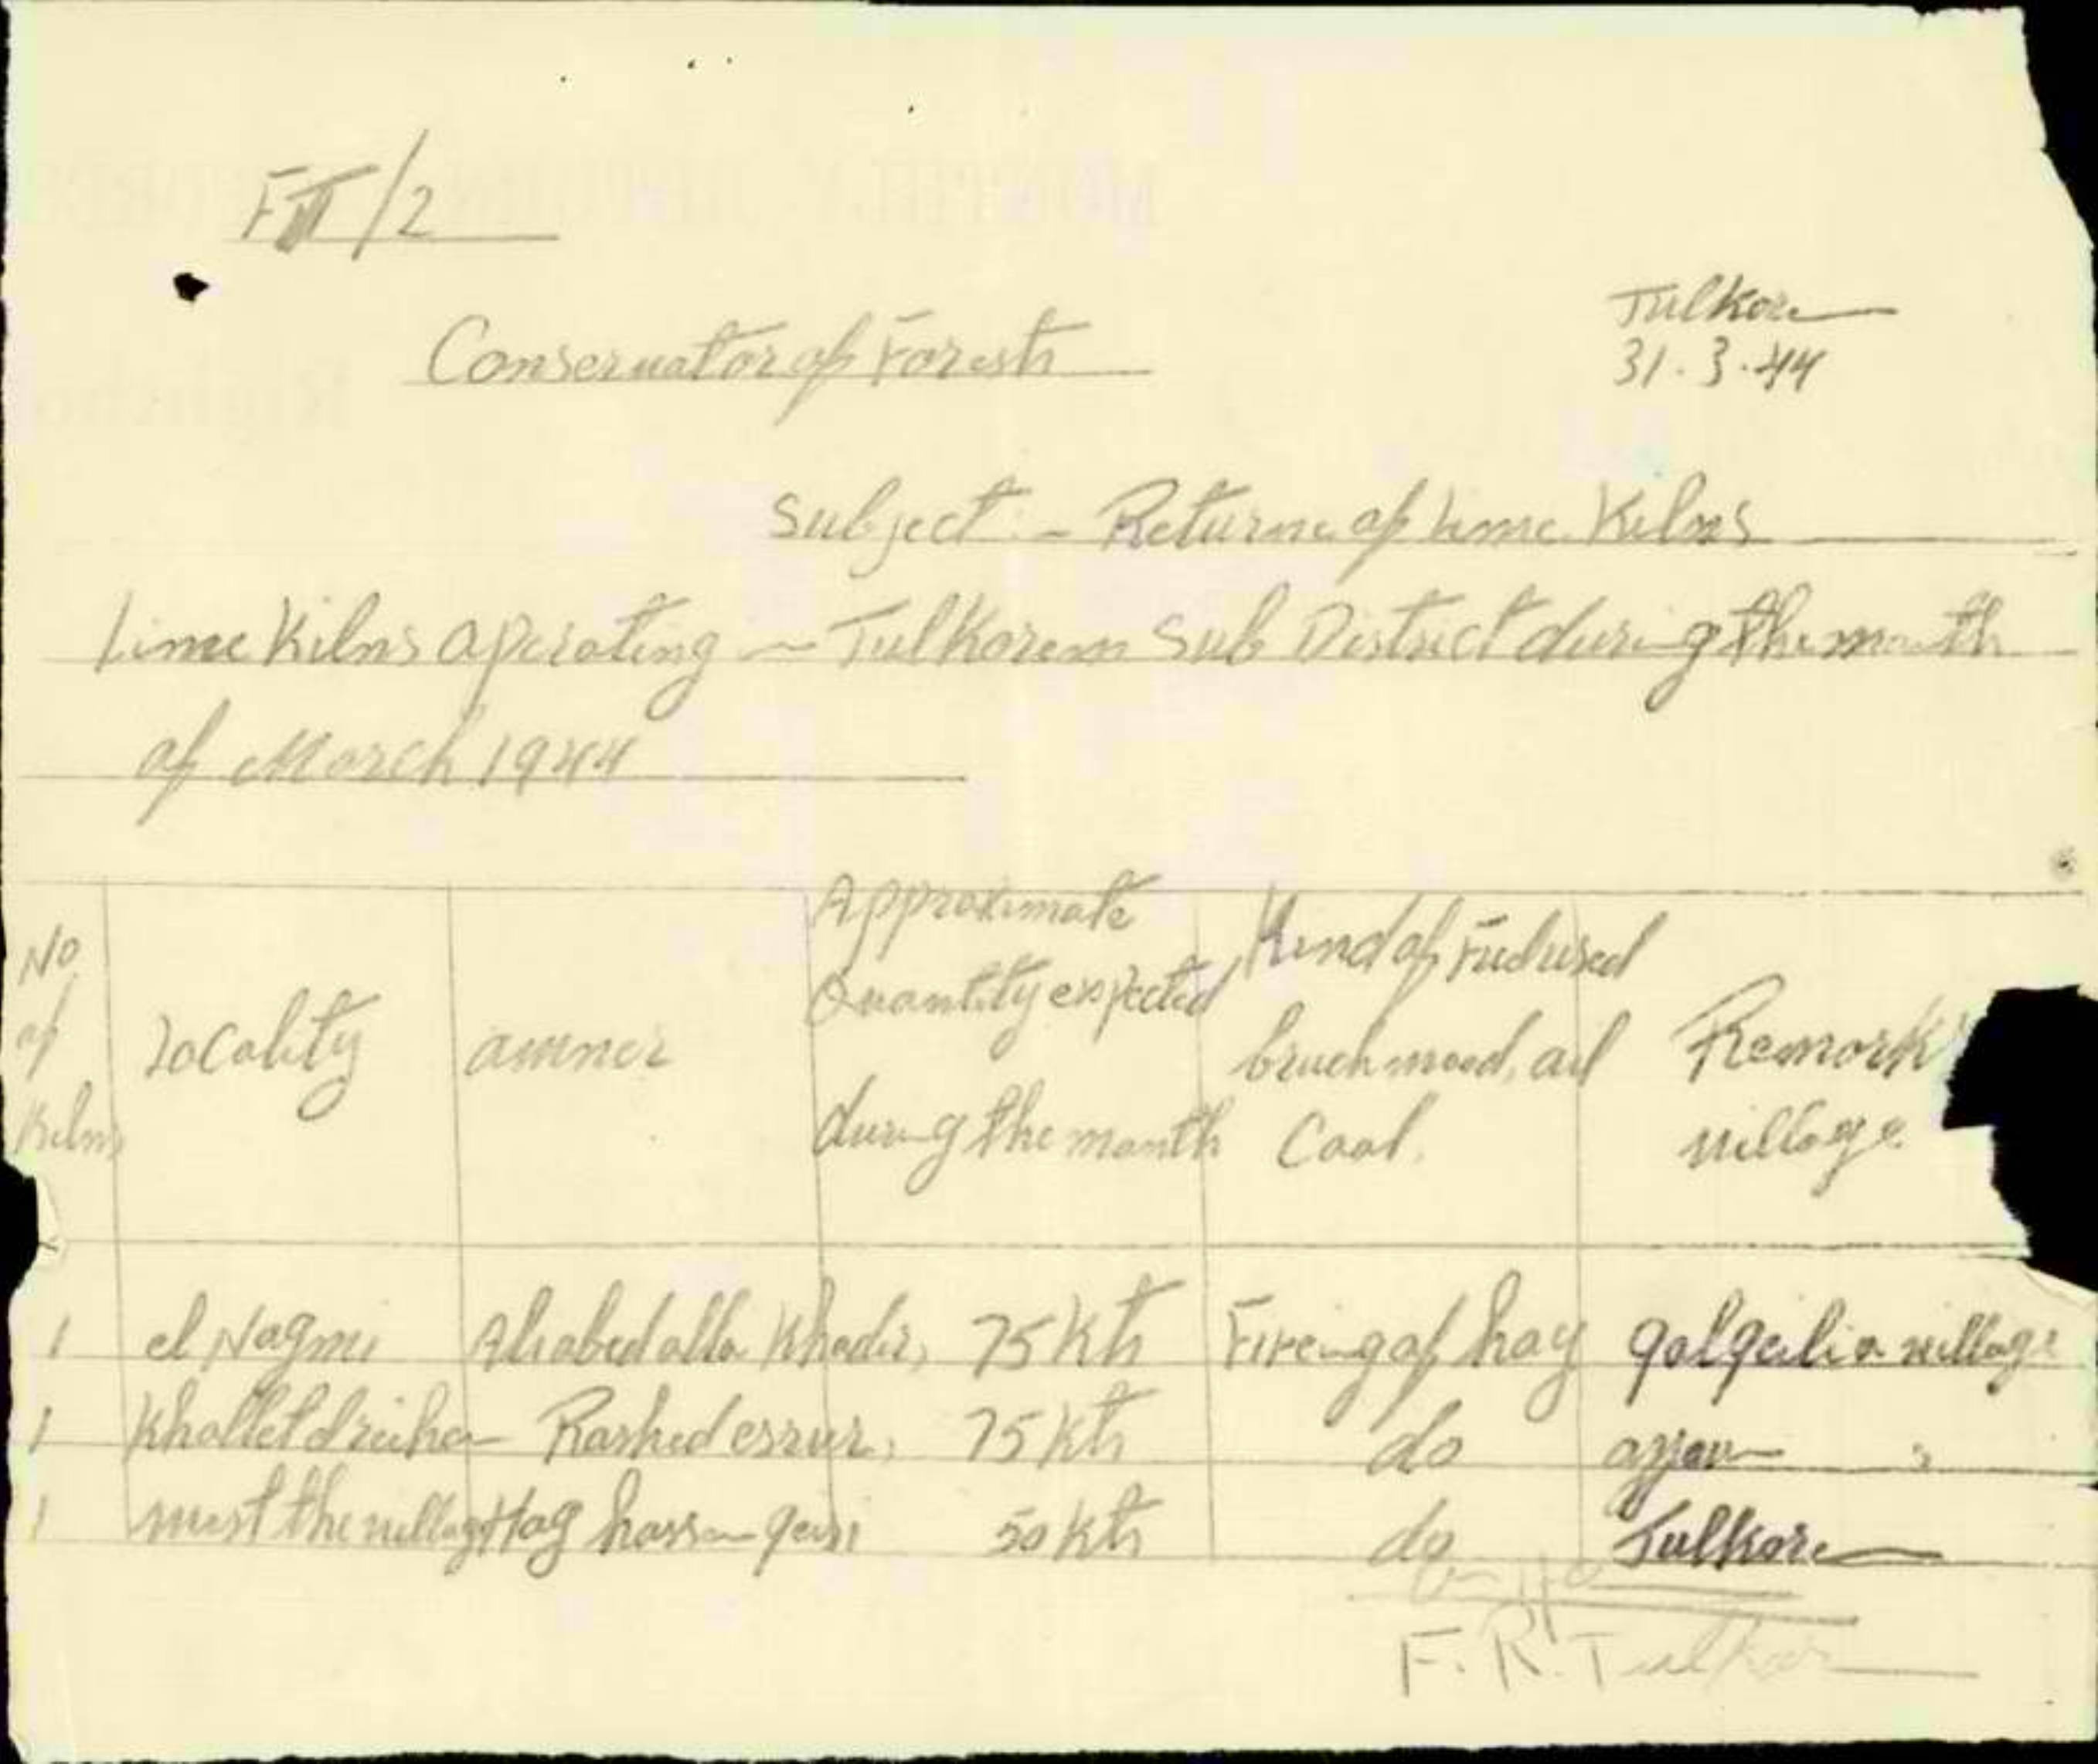 F II/2
Tulkorem
31.3.44
Conservator of Forests
Subject :- Returne of Lime Kilns
Lime Kilns operating in Tulkorem Sub District during the month
of March 1944
No of Kilns
Locality
owner
Approximate Quantity expected during the month
Kind of Fuel used bruch wood, oil Coal.
Remark village
1 el Nagmi Ali abed alla Khader, 75 Kts Fireing of hay qalqilia village
1 Khallet Rashed 75 Kts do azzun "
1 west the village Hag hassan 50 Kts do Tulkorem
F. R. Tulkar